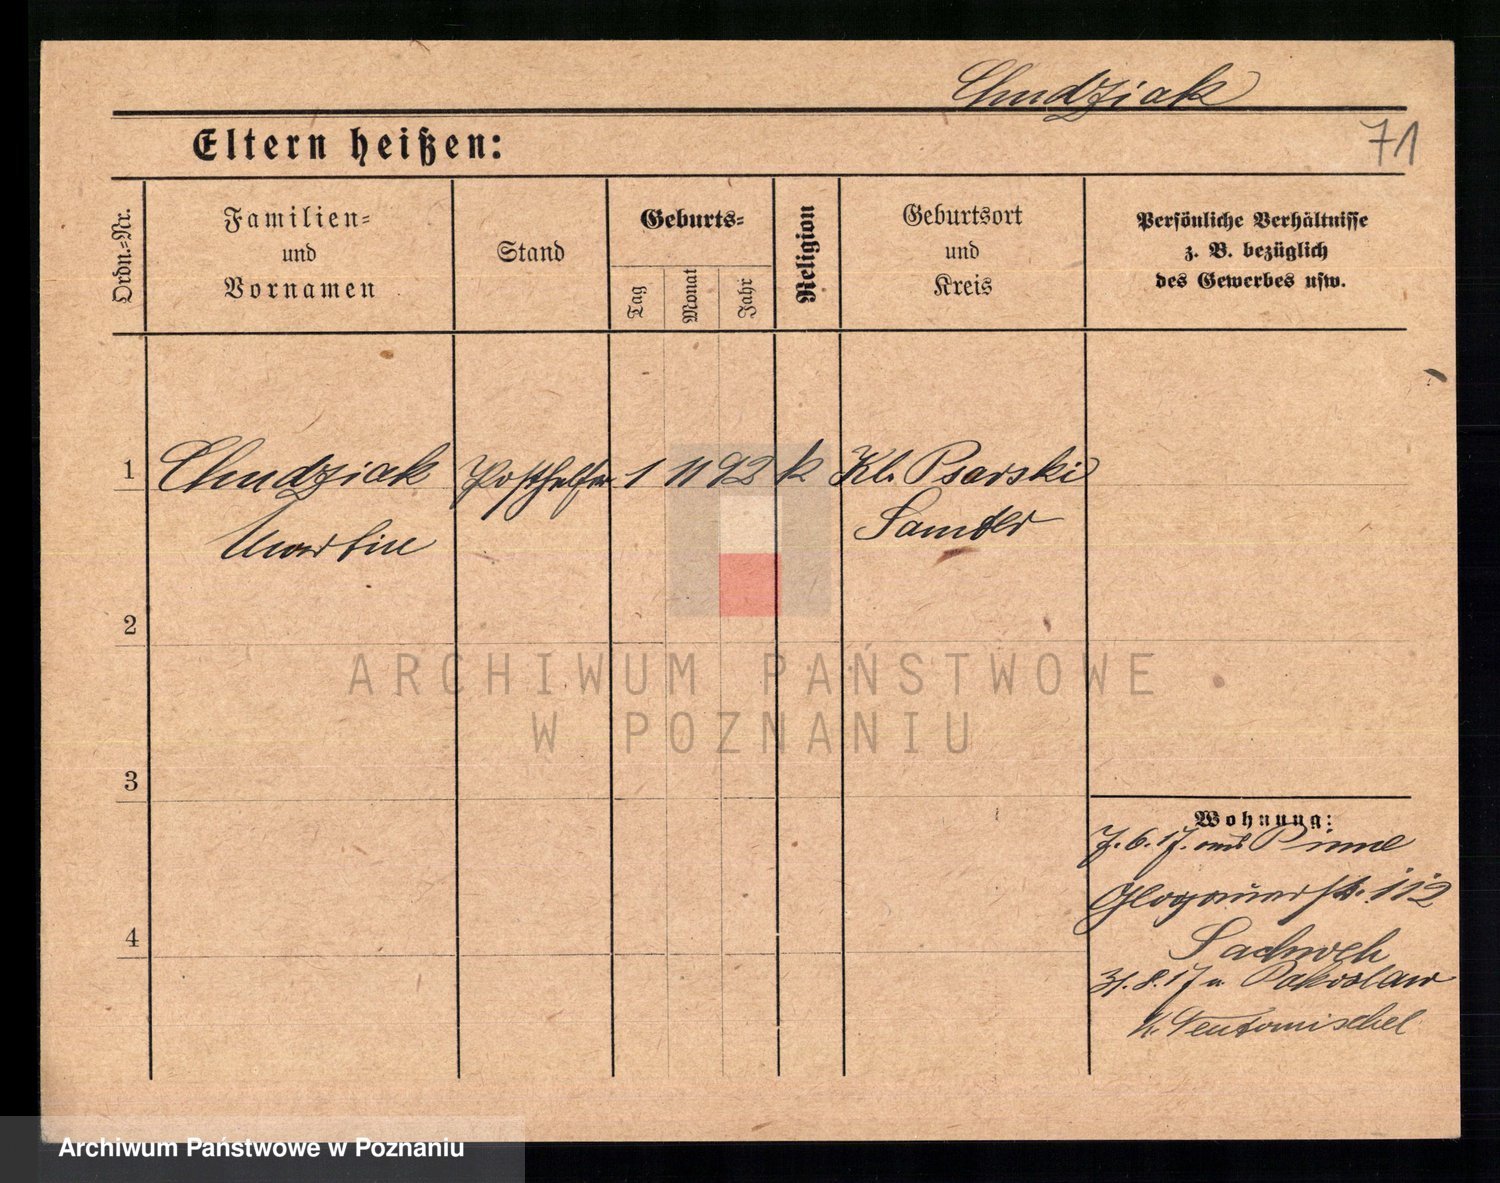 Chudziak
71
Eltern heißen:
Ordn.=Nr.
Familien=
und
Vornamen
Stand
Geburts=
Tag
Monat
Jahr
Religion
Geburtsort
und
Kreis
Persönliche Verhältnisse
z. B. bezüglich
des Gewerbes usw.
1 Chudziak Posthelfer 1 11 92 k Kl. Psarski
Martin Samter
2
3
4
Wohnung:
7.6.17. aus Pinne
Glogauerstr. 112
Sachweh
31.8.17 n. Pakoslaw
K. Neutomischel
ARCHIWUM PAŃSTWOWE
W POZNANIU
Archiwum Państwowe w Poznaniu